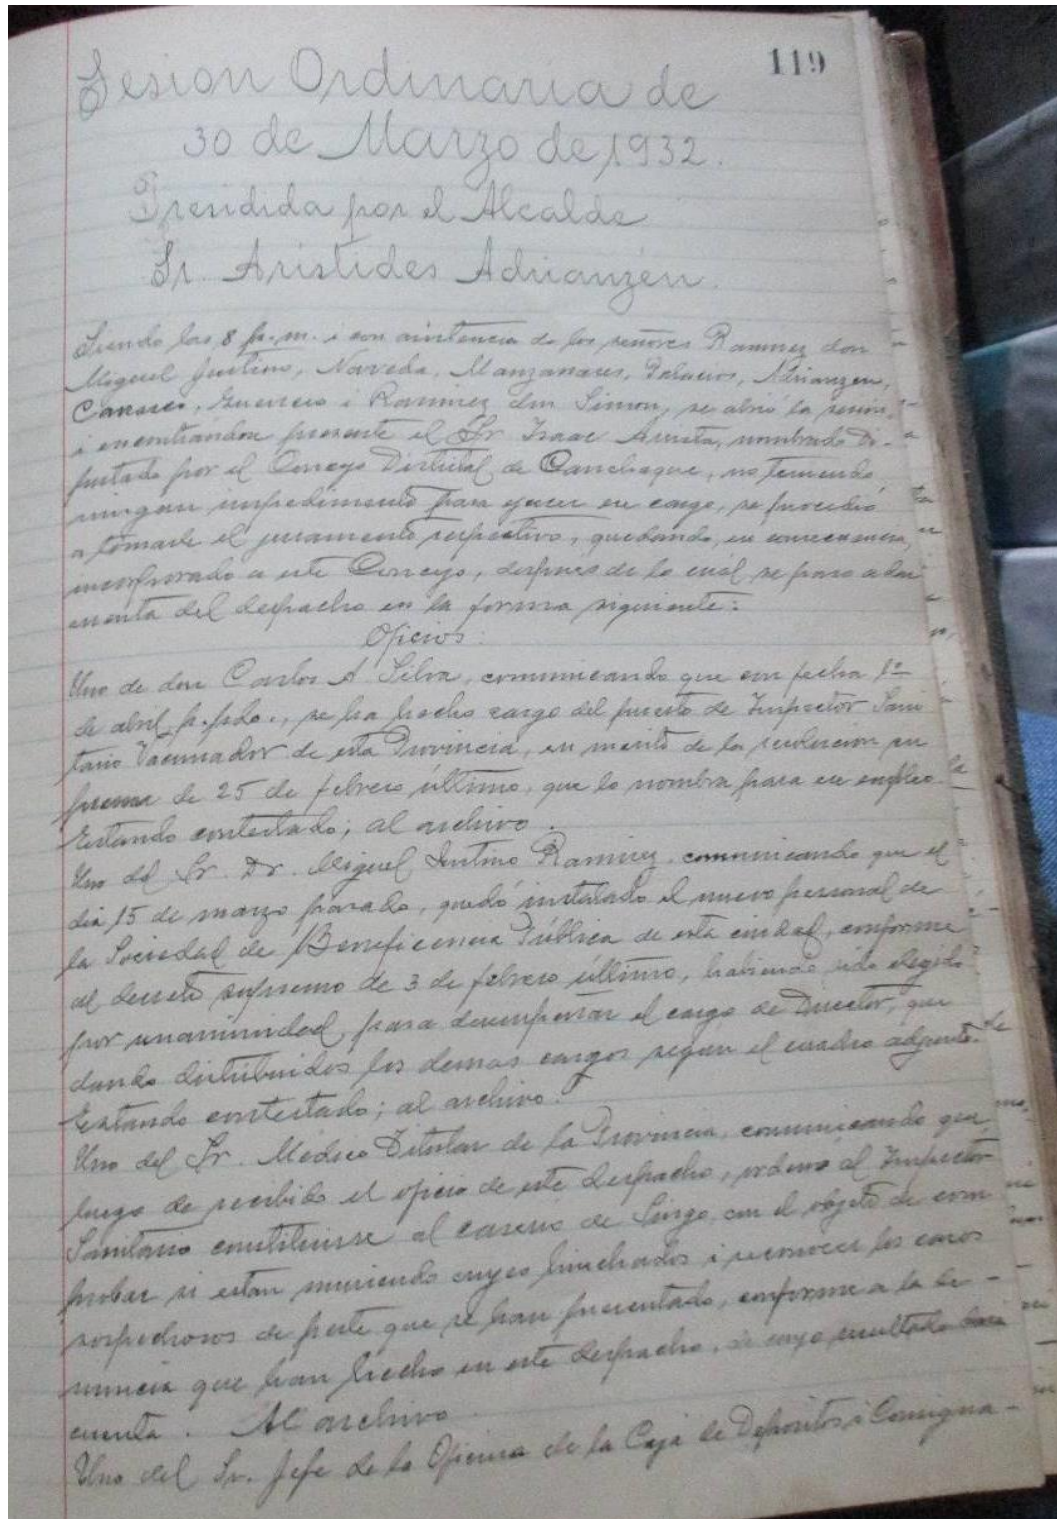 119
Sesion Ordinaria de
30 de Marzo de 1932.
Presidida por el Alcalde
Sr. Aristides Adrianzén.
Siendo las 8 p.m. i con asistencia de los señores Ramirez don
Miguel Justino, Naveda, Manzanares, Palacios, Adrianzén,
Carrasco, Guerrero i Ramirez don Simon, se abrió la sesion,
i encontrándose presente el Sr. Isaac Acosta, nombrado Di-
putado por el Concejo Distrital de Canchaque, no teniendo
ningun impedimento para ejercer su cargo, se procedió
a tomarle el juramento respectivo, quedando, en consecuencia,
incorporado a este Concejo, despues de lo cuál se paso a dar
cuenta del despacho en la forma siguiente:
Oficios:
Uno de don Carlos A. Silva, comunicando que con fecha 1º
de abril p.pdo., se ha hecho cargo del puesto de Inspector Sani
tario Vacunador de esta Provincia, en merito de la resolucion su
prema de 25 de febrero último, que lo nombra para su empleo.
Estando contestado; al archivo.
Uno del Sr. Dr. Miguel Justino Ramirez, comunicando que el
dia 15 de marzo pasado, quedó instalado el nuevo personal de
la Sociedad de Beneficencia Pública de esta ciudad, conforme
al decreto supremo de 3 de febrero último, habiendo sido elegido
por unanimidad, para desempeñar el cargo de Director, que
dando distribuidos los demas cargos segun el cuadro adjunto.
Estando contestado; al archivo.
Uno del Sr. Médico Titular de la Provincia, comunicando que
luego de recibido el oficio de este despacho, ordenó al Inspector
Sanitario constituirse al caserio de Singo, con el objeto de com
probar si estan muriendo cuyes hinchados i reconocer los casos
sospechosos de peste que se han presentado, conforme a la de-
nuncia que han hecho en este despacho, de cuyo resultado dará
cuenta. Al archivo.
Uno del Sr. Jefe de la Oficina de la Caja de Depositos i Consigna-